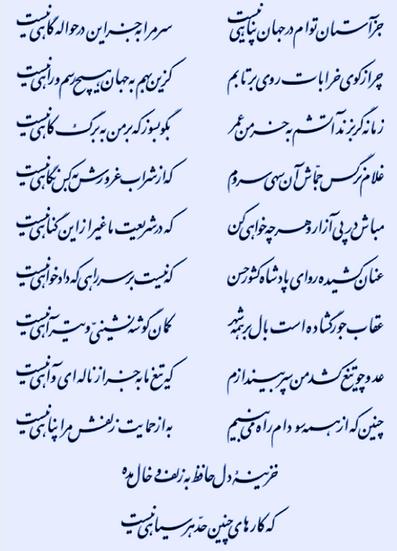 جز آستان توام در جهان پناهی نیست سر مرا به جز این در حواله گاهی نیست
چرا ز کوی خرابات روی برتابم کزین بهم به جهان هیچ رسم و راهی نیست
زمانه گر بزند آتشم به خرمن عمر بگو بسوز که بر من به برگ کاهی نیست
غلام نرگس جمّاش آن سهی سروم که از شراب غرورش به کس نگاهی نیست
مباش در پی آزار و هر چه خواهی کن که در شریعت ما غیر از این گناهی نیست
عنان کشیده رو ای پادشاه کشور حسن که نیست بر سر راهی که دادخواهی نیست
عقاب جور گشاده است بال بر همه شهر کمان گوشه نشینی و تیر آهی نیست
عدو چو تیغ کشد من سپر بیندازم که تیغ ما به جز از ناله ای و آهی نیست
چنین که از همه سو دام راه می بینم به از حمایت زلفش مرا پناهی نیست
خزینه دل حافظ به زلف و خال مده
که کارهای چنین حدّ هر سیاهی نیست